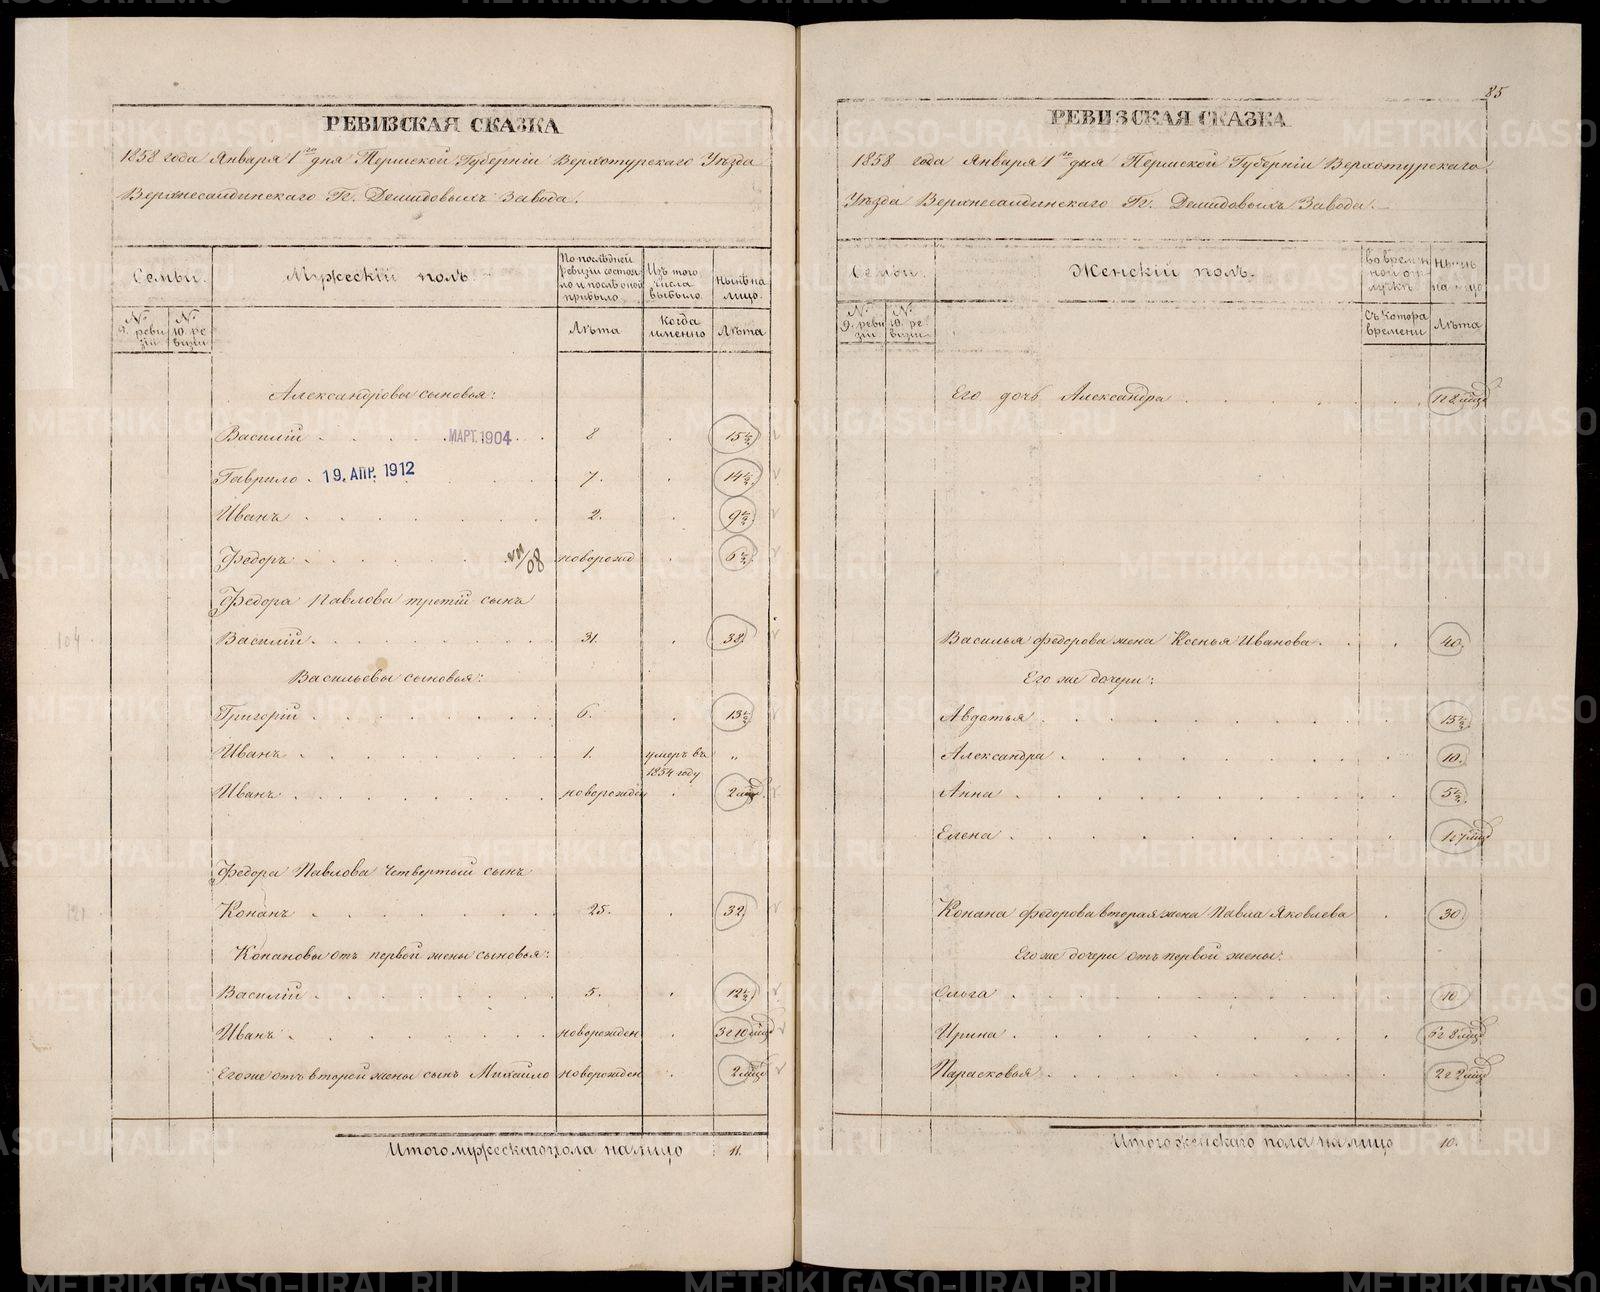 РЕВИЗСКАЯ СКАЗКА
1858 года Января 1го дня Пермской Губерніи Верхотурскаго Уѣзда
Верхнесалдинскаго Гг. Демидовыхъ Завода.
Семьи.
Мужескій полъ.
По послѣдней ревизіи состояло и послѣ оной прибыло
Изъ того числа выбыло
Нынѣ на лицо.
№ 9. ревизіи
№ 10. ревизіи
Лѣта
Когда именно
Лѣта
Александровы сыновья:
Василій . . . . МАРТ.1904 . . 8 . 15½
Гаврило . 19. АПР. 1912 . . . 7. . 14½
Иванъ . . . . . . . 2. . 9½
Федоръ . . . . . VII/08 новорожд . 6½
Федора Павлова третій сынъ
104
Василій . . . . . . . 31. . 38.
Васильевы сыновья:
Григорій . . . . . . . 6. . 13½
Иванъ . . . . . . . 1. умеръ въ 1854 году „
Иванъ . . . . . . . новорожден . 2 мѣс.
Федора Павлова четвертый сынъ
121
Конанъ . . . . . . . 25. . 32
Конановы отъ первой жены сыновья:
Василій . . . . . . . 5. . 12½
Иванъ . . . . . . . новорожден . 3 г 10 мѣс
Его же отъ второй жены сынъ Михайло новорожден . 2 мѣс
Итого мужескаго пола на лицо 11.
85
РЕВИЗСКАЯ СКАЗКА
1858 года Января 1го дня Пермской Губерніи Верхотурскаго
Уѣзда Верхнесалдинскаго Гг. Демидовыхъ Завода.
Семьи.
Женскій полъ.
Во временной отлучкѣ
Нынѣ на лицо
№ 9. ревизіи
№ 10. ревизіи
Съ котора времени
Лѣта
Его дочь Александра . . . . . . 1 г 8 мѣс
Василья Федорова жена Ксенья Иванова . . . 40.
Его же дочери:
Авдотья . . . . . . . 15½
Александра . . . . . . . 10.
Анна . . . . . . . 5½
Елена . . . . . . . 1 г 7 мѣс
Конана Федорова вторая жена Павла Яковлева . 30.
Его же дочери отъ первой жены:
Ольга . . . . . . . 10
Ирина . . . . . . . 6 г 8 мѣс
Парасковья . . . . . . . 2 г 2 мѣс
Итого женскаго пола на лицо 10.
METRIKI.GASO-URAL.RU